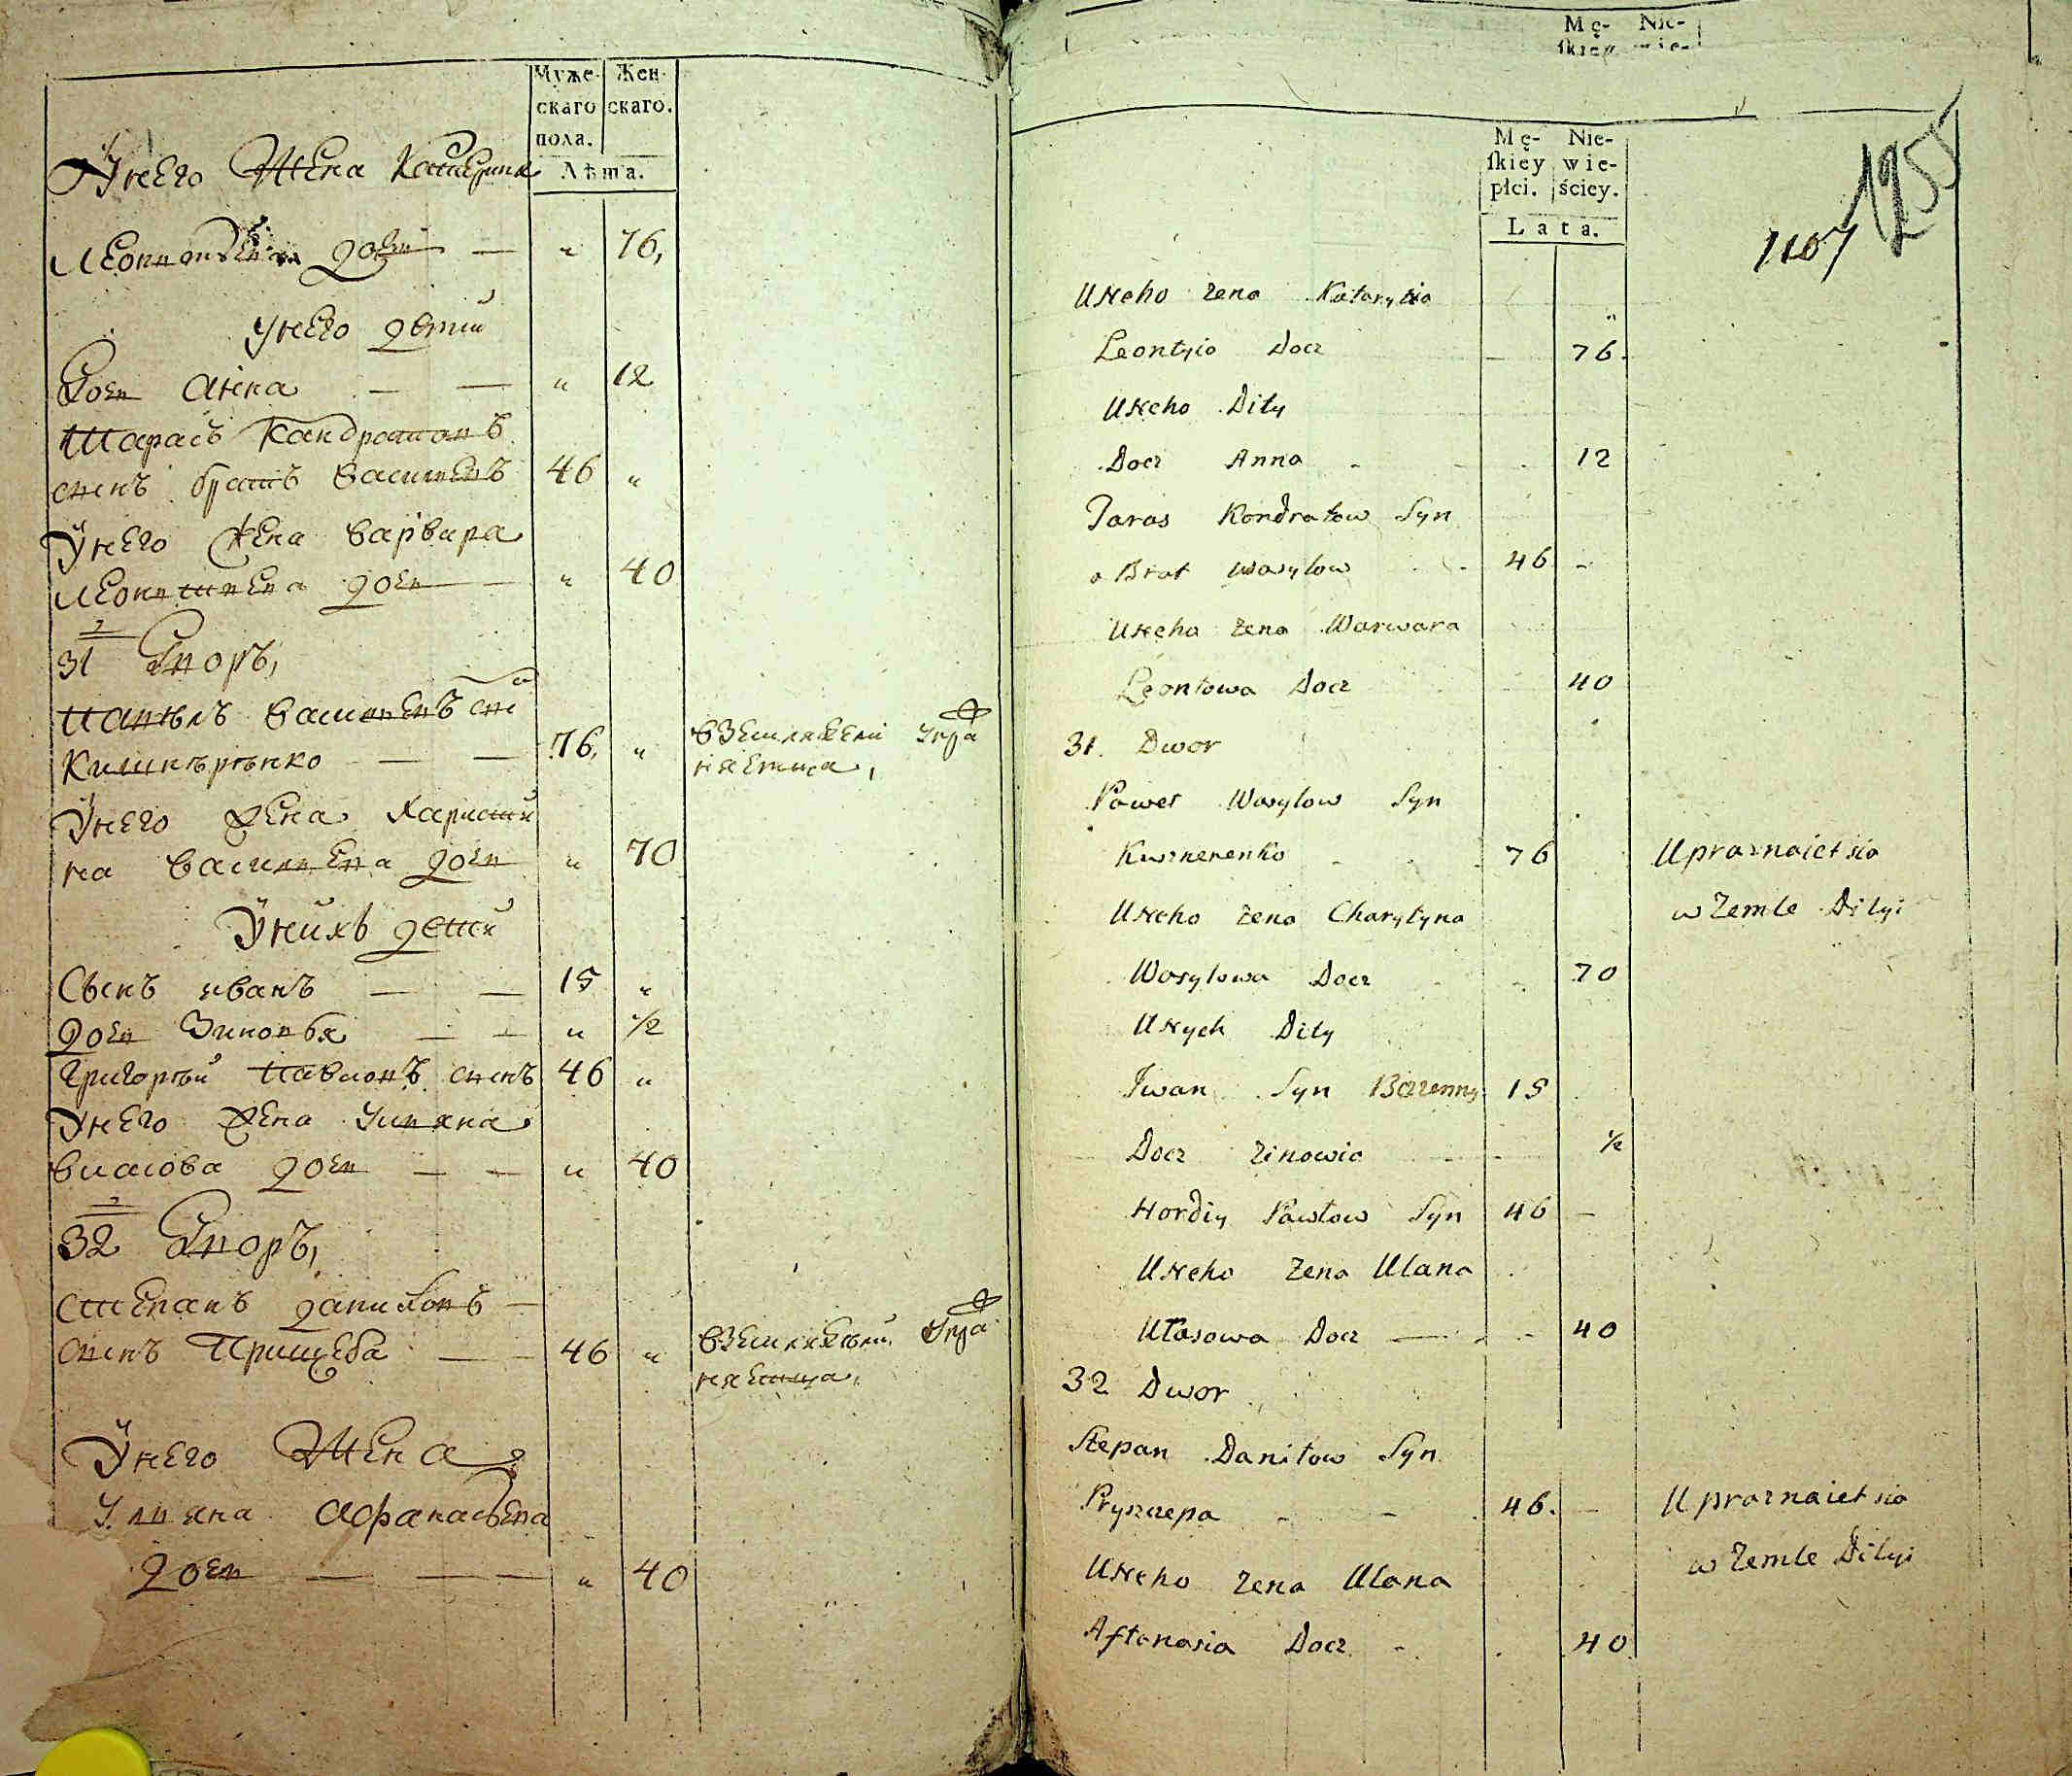 Муже- Жен-
скаго скаго.
пола.
Лѣта.
Унего Жена Катерина
Леонтьева дочь — " 76,
Унего детей
Дочь Анна — — " 12
Тарасъ Кандратовъ
сынъ братъ Васильевъ 46 "
Унего жена Варвара
Леонтьева дочь — " 40
31 Дворъ,
Павелъ Васильевъ сынъ
76, " взємляжели Упра
няєтца,
Унего жена Харити
на Васильева дочь " 70
Унейхъ детей
Сынъ иванъ — — 15 "
дочь Зиновья — — " 1/2
Григорей Павловъ сынъ 46 "
Унего жена Уляна
Власова дочь — — " 40
32 Дворъ,
Степанъ даниловъ —
сынъ Прищепа — — 46 " Упра
няєтца,
Унего Жена
Уляна Афанасьева
дочь — — — " 40
Mę- Nie-
skiey wie-
Mę- Nie-
skiey wie-
płci. ściey.
Lata.
1107 1255
UNeho Zena Kataryna
Leontyio Docz — " 76.
UNeho Dity
Docz Anna - 12
Taras Kondratow Syn
a Brat Wasylow 46 -
UNeho Zena Warwara
Leontowa Docz 40
31. Dwor
Paweł Wasylow Syn
Kusznerenko - 76 Uprarnaiet sia
w Zemle Dilyi
UNeho Zena Charytyna
Wasylowa Docz 70
UNych Dity
Iwan Syn 15
Docz Zinowia 1/2
Hordiy Pawłow Syn 46 -
UNeho Zena Ulana
Ułasowa Docz — - 40
32 Dwor
Stepan Daniłow Syn
Pryszczepa - - 46. — Uprarnaiet sia
w Zemle Dilyi
UNeho Zena Ulana
Aftanasia Docz - 40